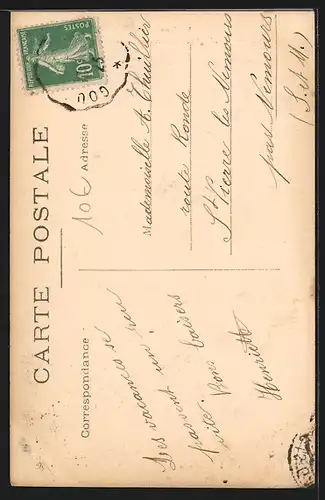 CARTE POSTALE
Correspondance
Adresse
10€
POSTES
10c
GOU
Les vacances se
passent un
vite. Bons baisers
Henriette
Mademoiselle A. Thuillier
route Ronde
St Pierre les Nemours
par Nemours
(S. et M.)